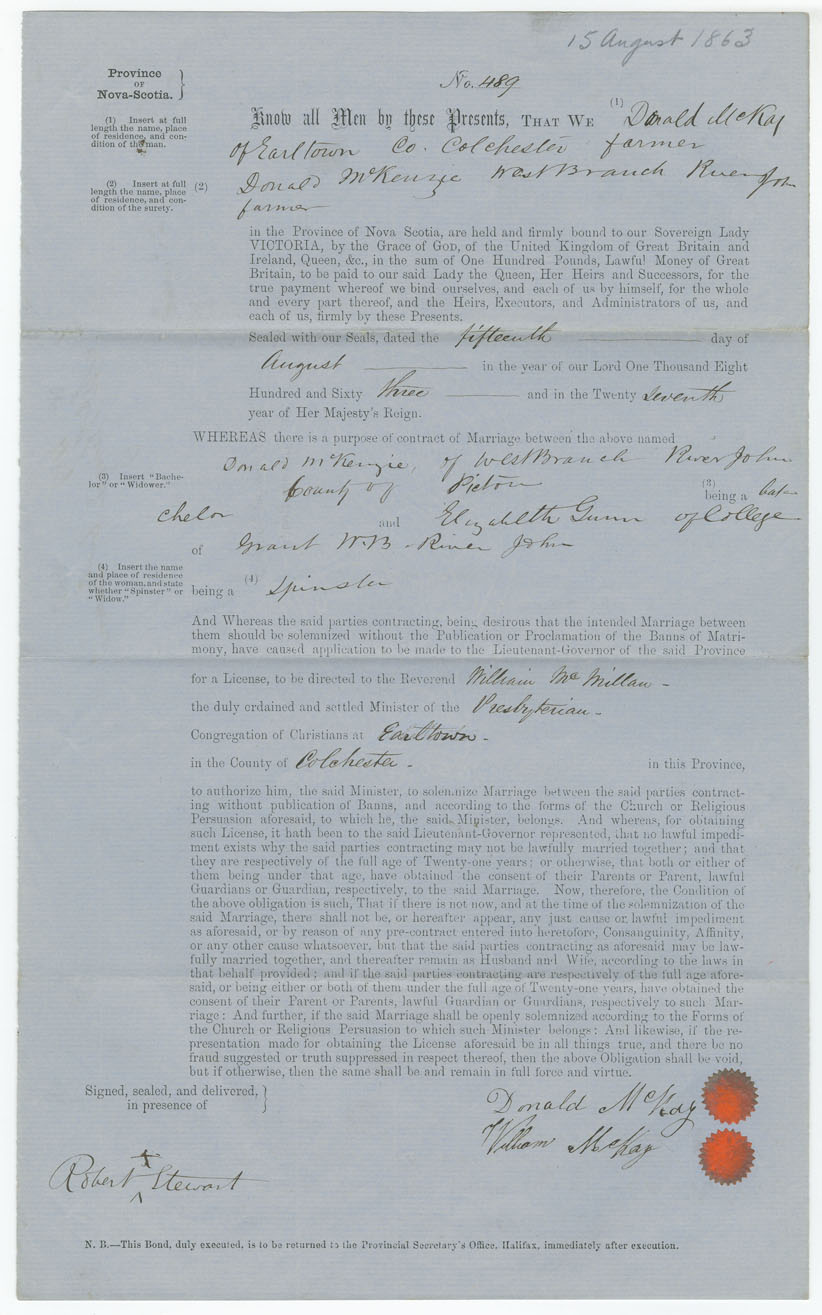 15 August 1863
Province
OF
Nova-Scotia.
No. 489
(1) Insert at full
length the name, place
of residence, and con-
dition of the man.
Know all Men by these Presents, THAT WE (1) Donald McKay
of Earltown Co. Colchester farmer
(2) Insert at full
length the name, place
of residence, and con-
dition of the surety.
(2) Donald McKenzie West Branch River John
farmer
in the Province of Nova Scotia, are held and firmly bound to our Sovereign Lady
VICTORIA, by the Grace of GOD, of the United Kingdom of Great Britain and
Ireland, Queen, &c., in the sum of One Hundred Pounds, Lawful Money of Great
Britain, to be paid to our said Lady the Queen, Her Heirs and Successors, for the
true payment whereof we bind ourselves, and each of us by himself, for the whole
and every part thereof, and the Heirs, Executors, and Administrators of us, and
each of us, firmly by these Presents.
Sealed with our Seals, dated the fifteenth day of
August in the year of our Lord One Thousand Eight
Hundred and Sixty three and in the Twenty seventh
year of Her Majesty's Reign.
WHEREAS there is a purpose of contract of Marriage between the above named
Donald McKenzie, of West Branch River John
(3) Insert "Bache-
lor" or "Widower."
County of Pictou (3) being a bat-
chelor and Elizabeth Gunn of College
of Grant W.B. River John
(4) Insert the name
and place of residence
of the woman, and state
whether "Spinster" or
"Widow."
being a (4) Spinster
And Whereas the said parties contracting, being desirous that the intended Marriage between
them should be solemnized without the Publication or Proclamation of the Banns of Matri-
mony, have caused application to be made to the Lieutenant-Governor of the said Province
for a License, to be directed to the Reverend William McMillan -
the duly ordained and settled Minister of the Presbyterian -
Congregation of Christians at Earltown -
in the County of Colchester - in this Province,
to authorize him, the said Minister, to solemnize Marriage between the said parties contract-
ing without publication of Banns, and according to the forms of the Church or Religious
Persuasion aforesaid, to which he, the said Minister, belongs. And whereas, for obtaining
such License, it hath been to the said Lieutenant-Governor represented, that no lawful impedi-
ment exists why the said parties contracting may not be lawfully married together; and that
they are respectively of the full age of Twenty-one years; or otherwise, that both or either of
them being under that age, have obtained the consent of their Parents or Parent, lawful
Guardians or Guardian, respectively, to the said Marriage. Now, therefore, the Condition of
the above obligation is such, That if there is not now, and at the time of the solemnization of the
said Marriage, there shall not be, or hereafter appear, any just cause or lawful impediment
as aforesaid, or by reason of any pre-contract entered into heretofore, Consanguinity, Affinity,
or any other cause whatsoever, but that the said parties contracting as aforesaid may be law-
fully married together, and thereafter remain as Husband and Wife, according to the laws in
that behalf provided; and if the said parties contracting are respectively of the full age afore-
said, or being either or both of them under the full age of Twenty-one years, have obtained the
consent of their Parent or Parents, lawful Guardian or Guardians, respectively to such Mar-
riage: And further, if the said Marriage shall be openly solemnized according to the Forms of
the Church or Religious Persuasion to which such Minister belongs: And likewise, if the re-
presentation made for obtaining the License aforesaid be in all things true, and there be no
fraud suggested or truth suppressed in respect thereof, then the above Obligation shall be void,
but if otherwise, then the same shall be and remain in full force and virtue.
Signed, sealed, and delivered,
in presence of
Donald McKay
William McKay
Robert X Stewart
N. B.—This Bond, duly executed, is to be returned to the Provincial Secretary's Office, Halifax, immediately after execution.